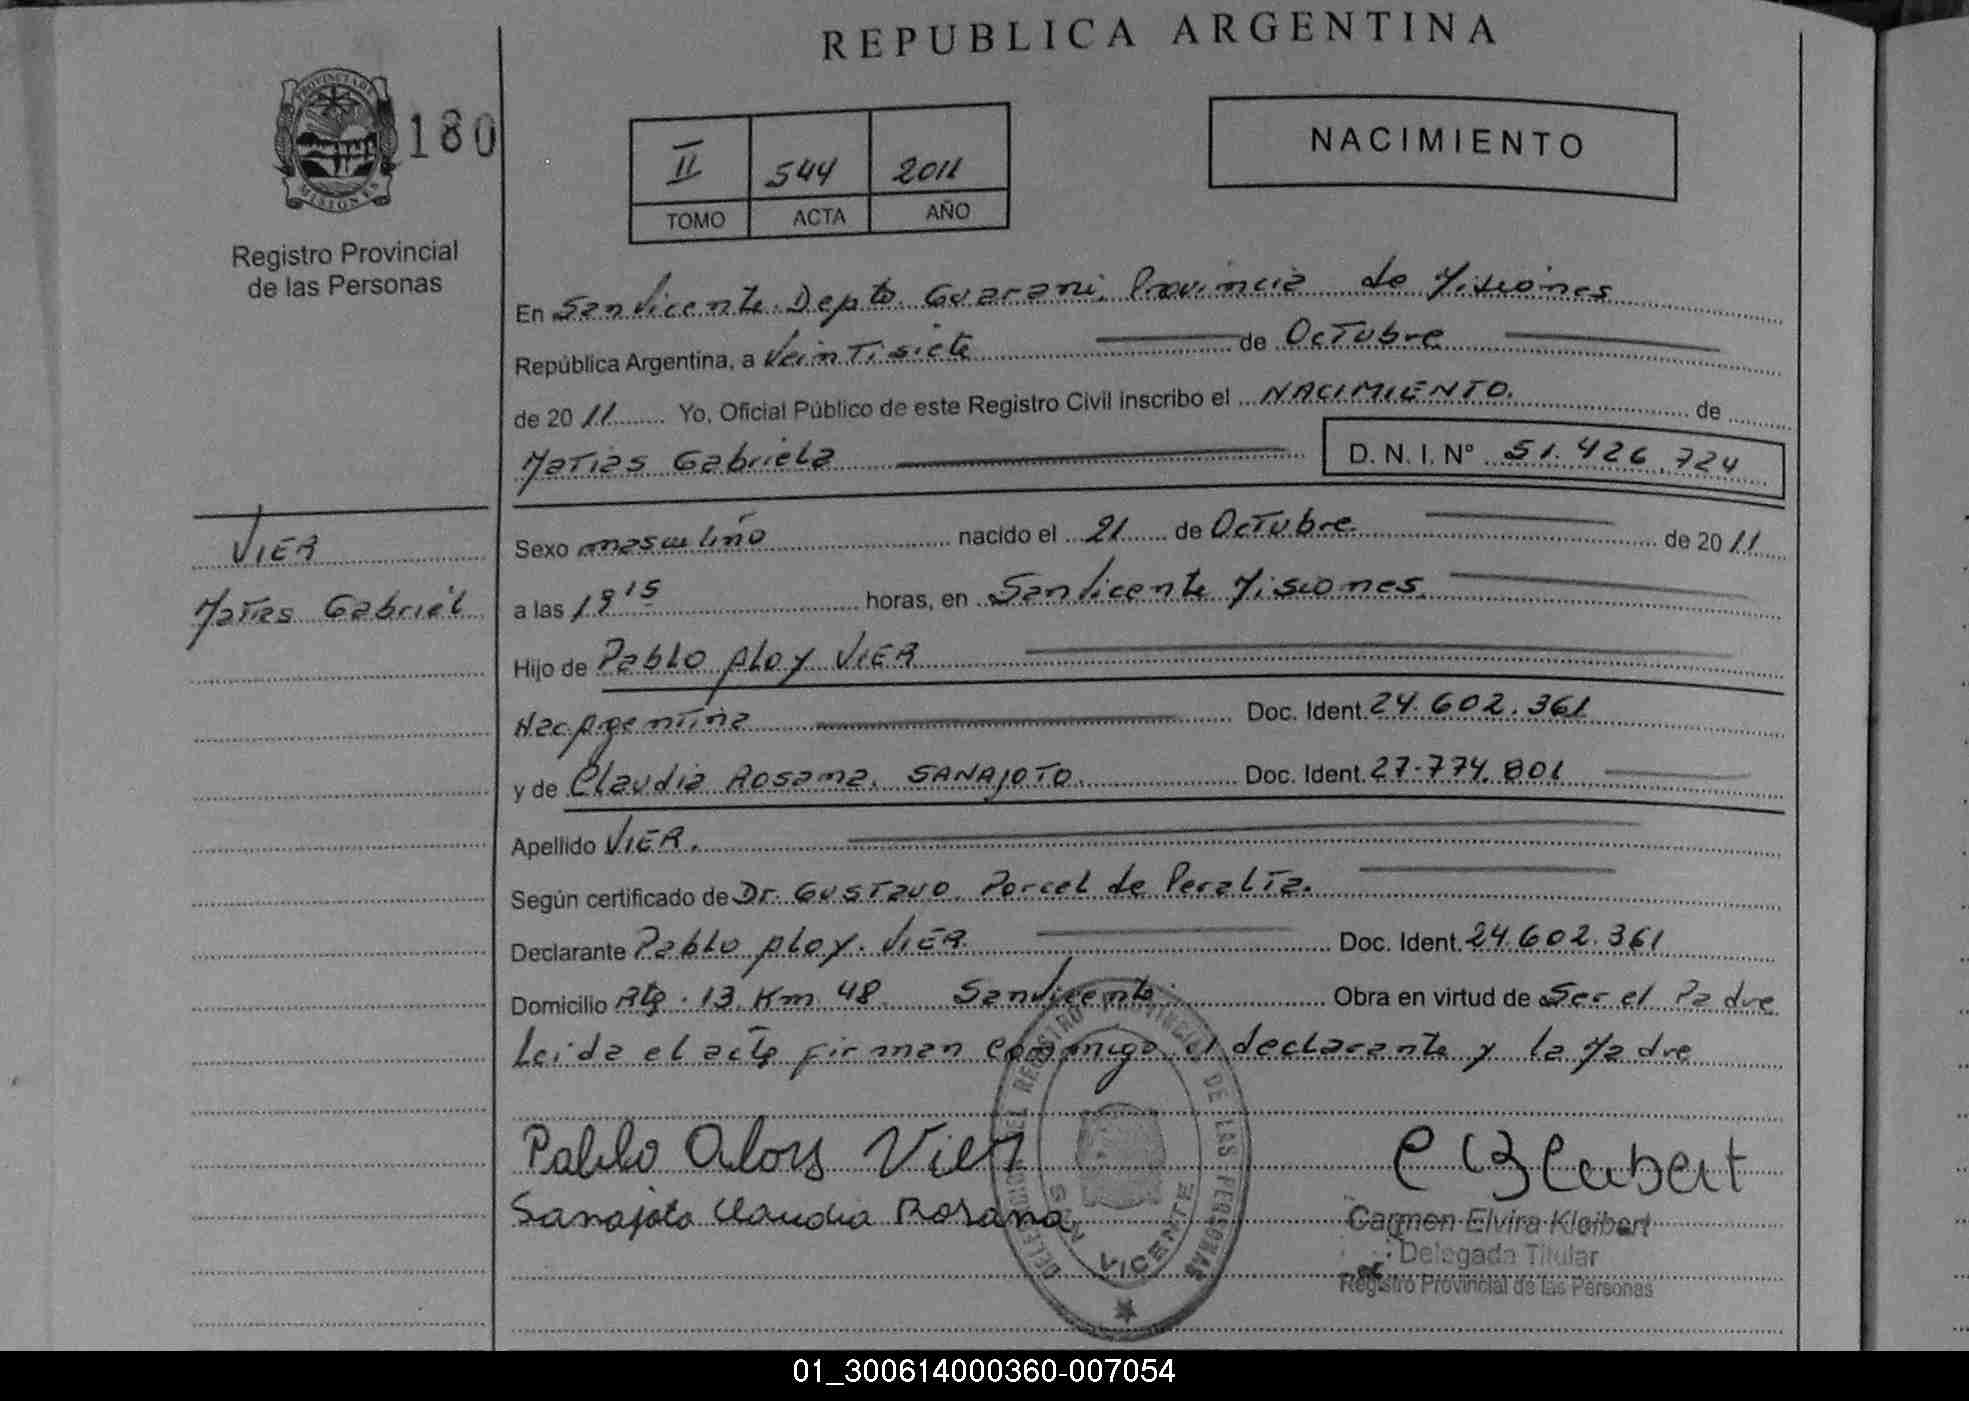 REPUBLICA ARGENTINA
PROVINCIA DE
MISIONES
180
Registro Provincial
de las Personas
II 544 2011
TOMO ACTA AÑO
NACIMIENTO
En San Vicente Depto Guarani, Provincia de Misiones
República Argentina, a Veintisiete de Octubre
de 2011 Yo, Oficial Público de este Registro Civil inscribo el NACIMIENTO. de
Matias Gabriela D. N. I. Nº 51.426.724
VIER
Matias Gabriel
Sexo masculino nacido el 21 de Octubre de 2011
a las 19 15 horas, en San Vicente Misiones.
Hijo de Pablo Aloy VIER
Nac Argentina Doc. Ident. 24.602.361
y de Claudia Rosana. SANAJOTO. Doc. Ident. 27.774.801
Apellido VIER.
Según certificado de Dr. Gustavo Porcel de Peralta.
Declarante Pablo Aloy. VIER Doc. Ident. 24.602.361
Domicilio Rta. 13. Km 48 San Vicente Obra en virtud de Ser el Padre
Leida el acta firman conmigo el declarante y la Madre
Pablo Aloys Vier
Sanajoto Claudia Rosana
C B Kleubert
Carmen Elvira Kleibert
Delegada Titular
Registro Provincial de las Personas
DELEGACION DEL REGISTRO PROVINCIAL DE LAS PERSONAS
SAN VICENTE
01_300614000360-007054